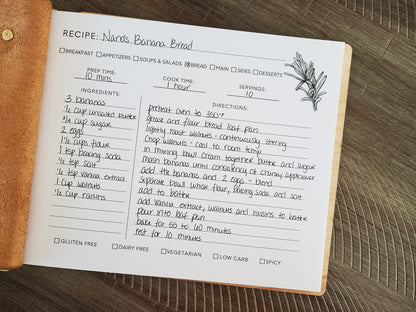 RECIPE: Nana's Banana Bread
BREAKFAST APPETIZERS SOUPS & SALADS BREAD MAIN SIDES DESSERTS
PREP TIME: 10 mins
COOK TIME: 1 hour
SERVINGS: 10
INGREDIENTS:
3 bananas
1/2 cup unsalted butter
3/4 cup sugar
2 eggs
1 1/2 cups flour
1 tsp baking soda
1/2 tsp salt
1/2 tsp vanilla extract
1 cup walnuts
1/2 cup raisins
DIRECTIONS:
preheat oven to 350°F
grease and flour bread loaf pan
lightly roast walnuts - continuously stirring
chop walnuts - cool to room temp
in mixing bowl cream together butter and sugar
mash bananas until consistency of chunky applesauce
add the bananas and 2 eggs - blend
separate bowl whisk flour, baking soda and salt
add to batter
add vanilla extract, walnuts and raisins to batter
pour into loaf pan
bake for 55 to 60 minutes
rest for 10 minutes
GLUTEN FREE DAIRY FREE VEGETARIAN LOW CARB SPICY